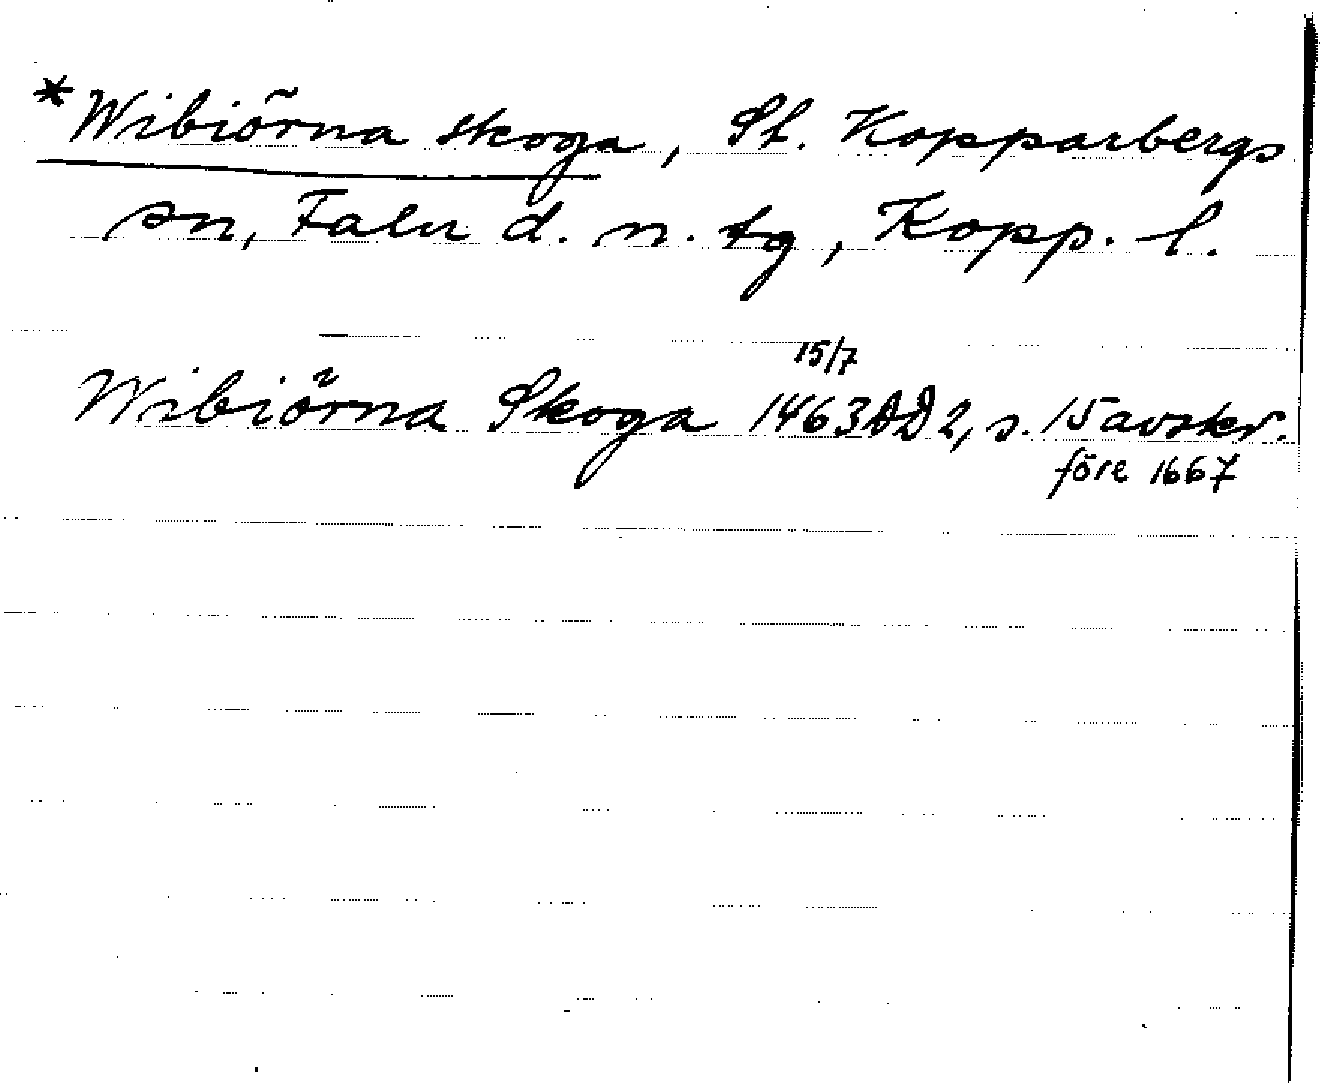 *Wibiörna skoga, St. Kopparbergs
sn, Falu d. n. tg, Kopp. l.
15/7
Wibiörna Skoga 1463 DD 2, s. 15 avskr.
före 1667